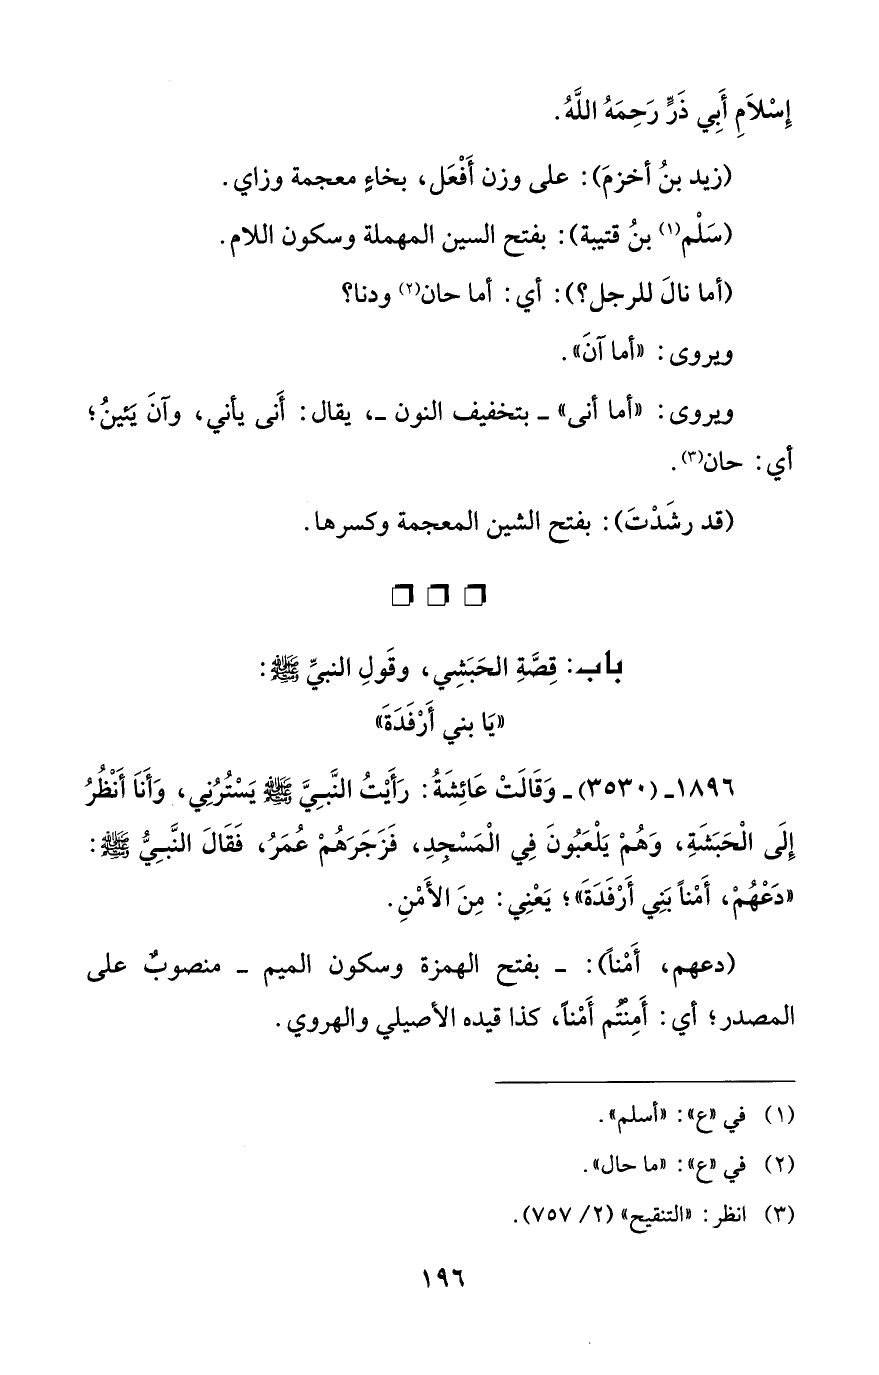 إِسْلاَمِ أَبِي ذَرٍّ رَحِمَهُ اللَّهُ.
(زيد بنُ أخزمَ): على وزن أَفْعَل، بخاءٍ معجمة وزاي.
(سَلْم(١) بنُ قتيبة): بفتح السين المهملة وسكون اللام.
(أما نالَ للرجل؟): أي: أما حان(٢) ودنا؟
ويروى: «أما آنَ».
ويروى: «أما أنى» ـ بتخفيف النون ـ، يقال: أَنى يأني، وآنَ يَئينُ؛
أي: حان(٣).
(قد رشَدْتَ): بفتح الشين المعجمة وكسرها.
❒ ❒ ❒
باب: قِصَّةِ الحَبَشِي، وقَولِ النبيِّ ﷺ:
«يَا بني أَرْفَدَةَ»
١٨٩٦ـ (٣٥٣٠) ـ وَقَالَتْ عَائِشَةُ: رَأَيْتُ النَّبِيَّ ﷺ يَسْتُرُنِي، وَأَنَا أَنْظُرُ
إِلَى الْحَبَشَةِ، وَهُمْ يَلْعَبُونَ فِي الْمَسْجِدِ، فَزَجَرَهُمْ عُمَرُ، فَقَالَ النَّبِيُّ ﷺ:
«دَعْهُمْ، أَمْناً بَنِي أَرْفَدَةَ»؛ يَعْنِي: مِنَ الأَمْنِ.
(دعهم، أَمْناً): ـ بفتح الهمزة وسكون الميم ـ منصوبٌ على
المصدر؛ أي: أَمِنْتُم أَمْناً، كذا قيده الأصيلي والهروي.
(١) في «ع»: «أسلم».
(٢) في «ع»: «ما حال».
(٣) انظر: «التنقيح» (٢/ ٧٥٧).
١٩٦